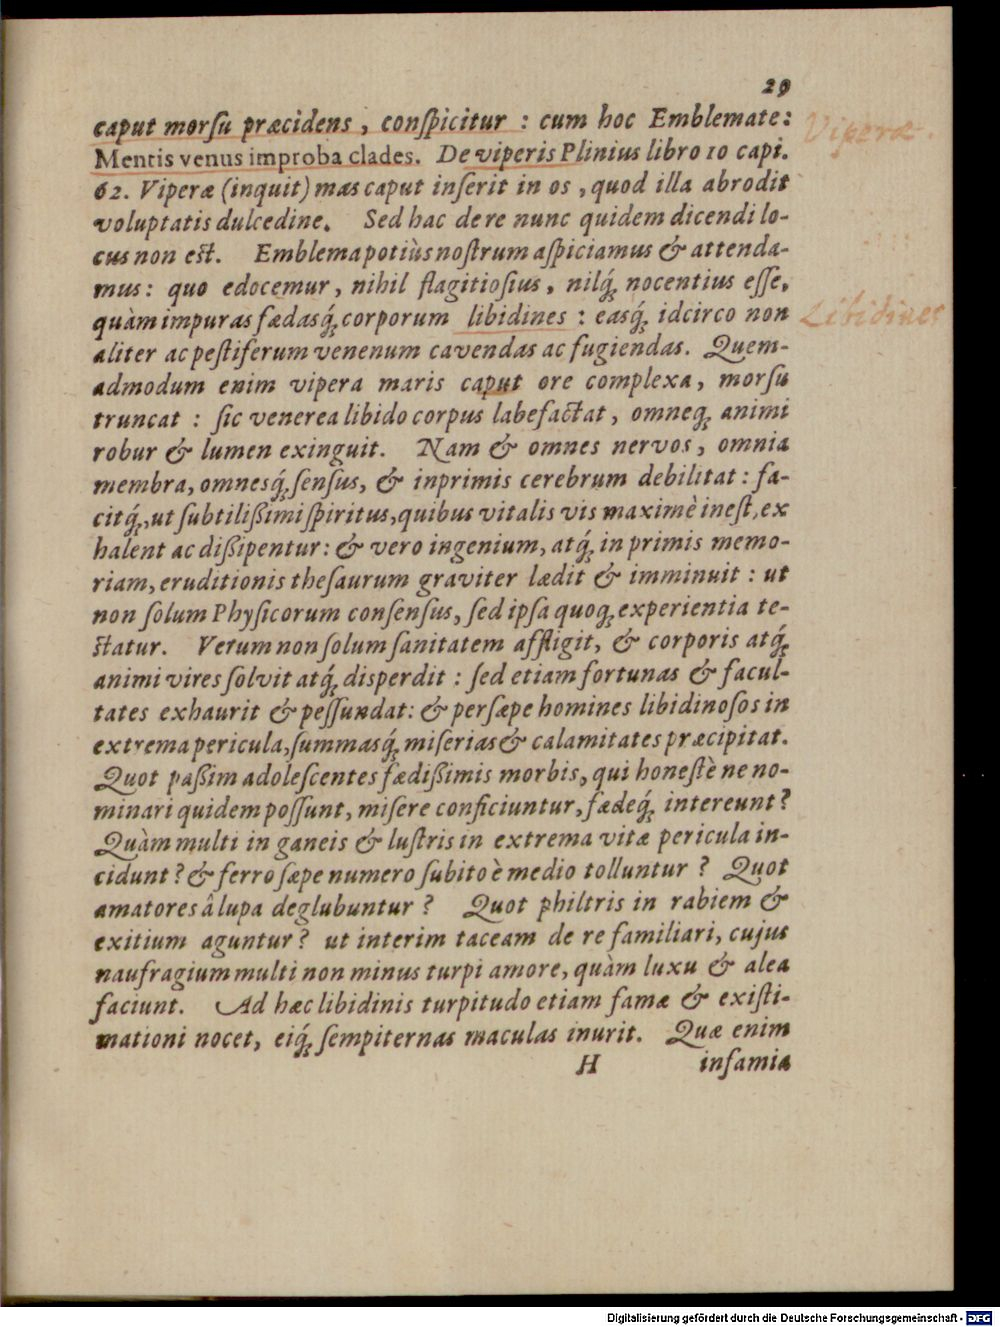 29
caput morſu præcidens, conſpicitur : cum hoc Emblemate:
Viperæ.
Mentis venus improba clades. De viperis Plinius libro 10 capi.
62. Viperæ (inquit) mas caput inſerit in os, quod illa abrodit
voluptatis dulcedine. Sed hac de re nunc quidem dicendi lo-
cus non eſt. Emblema potiùs noſtrum aſpiciamus & attenda-
mus: quo edocemur, nihil flagitioſius, nilq́; nocentius eſſe,
quàm impuras fædasq́; corporum libidines : easq́; idcirco non
Libidines
aliter ac peſtiferum venenum cavendas ac fugiendas. Quem-
admodum enim vipera maris caput ore complexa, morſu
truncat : ſic venerea libido corpus labefactat, omneq́; animi
robur & lumen exinguit. Nam & omnes nervos, omnia
membra, omnesq́; ſenſus, & inprimis cerebrum debilitat: fa-
citq́;, ut ſubtilißimi ſpiritus, quibus vitalis vis maximè ineſt, ex
halent ac dißipentur: & vero ingenium, atq́; in primis memo-
riam, eruditionis theſaurum graviter lædit & imminuit : ut
non ſolum Phyſicorum conſenſus, ſed ipſa quoq; experientia te-
ſtatur. Verum non ſolum ſanitatem affligit, & corporis atq́;
animi vires ſolvit atq́; disperdit : ſed etiam fortunas & facul-
tates exhaurit & peſſundat: & perſæpe homines libidinoſos in
extrema pericula, ſummasq́; miſerias & calamitates præcipitat.
Quot paßim adoleſcentes fædißimis morbis, qui honeſtè ne no-
minari quidem poſſunt, miſere conficiuntur, fædeq́; intereunt?
Quàm multi in ganeis & luſtris in extrema vitæ pericula in-
cidunt? & ferro ſæpe numero ſubito è medio tolluntur ? Quot
amatores â lupa deglubuntur ? Quot philtris in rabiem &
exitium aguntur? ut interim taceam de re familiari, cujus
naufragium multi non minus turpi amore, quàm luxu & alea
faciunt. Ad hæc libidinis turpitudo etiam famæ & exiſti-
mationi nocet, eiq́; ſempiternas maculas inurit. Quæ enim
H infamia
Digitalisierung gefördert durch die Deutsche Forschungsgemeinschaft - DFG